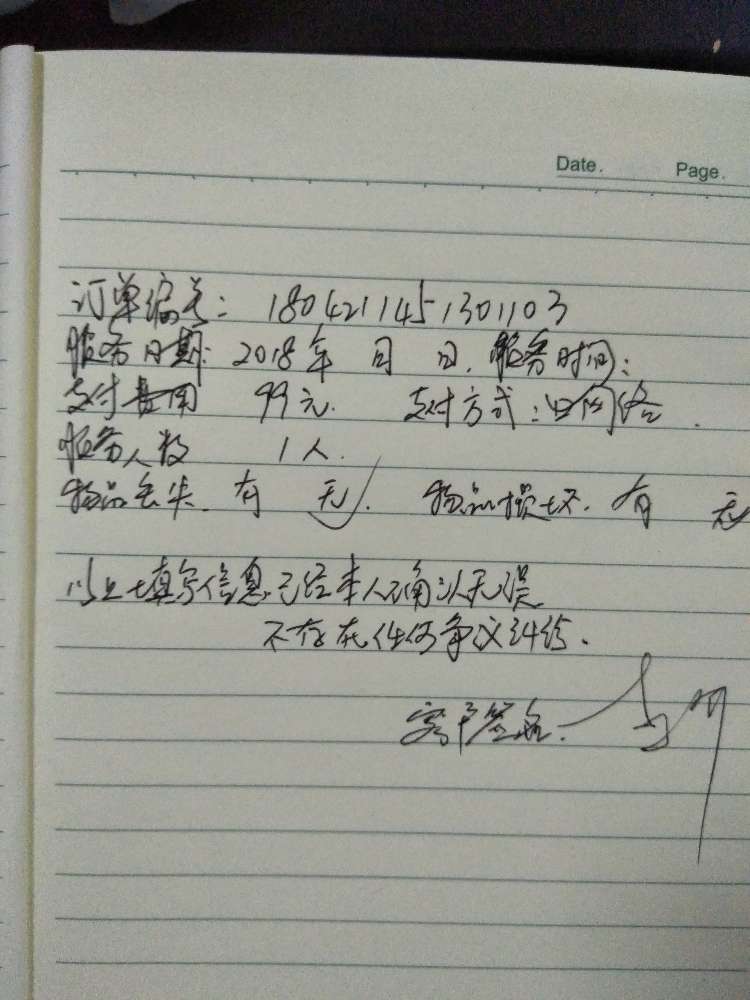 Date. Page.
订单编号: 1804211451301103
服务日期: 2018年 月 日. 服务时间:
支付费用 99元. 支付方式:
服务人数 1人.
物品丢失. 有 无. 物品损坏. 有 无
以上填写信息已经本人确认无误
不存在任何争议纠纷.
客户签名.